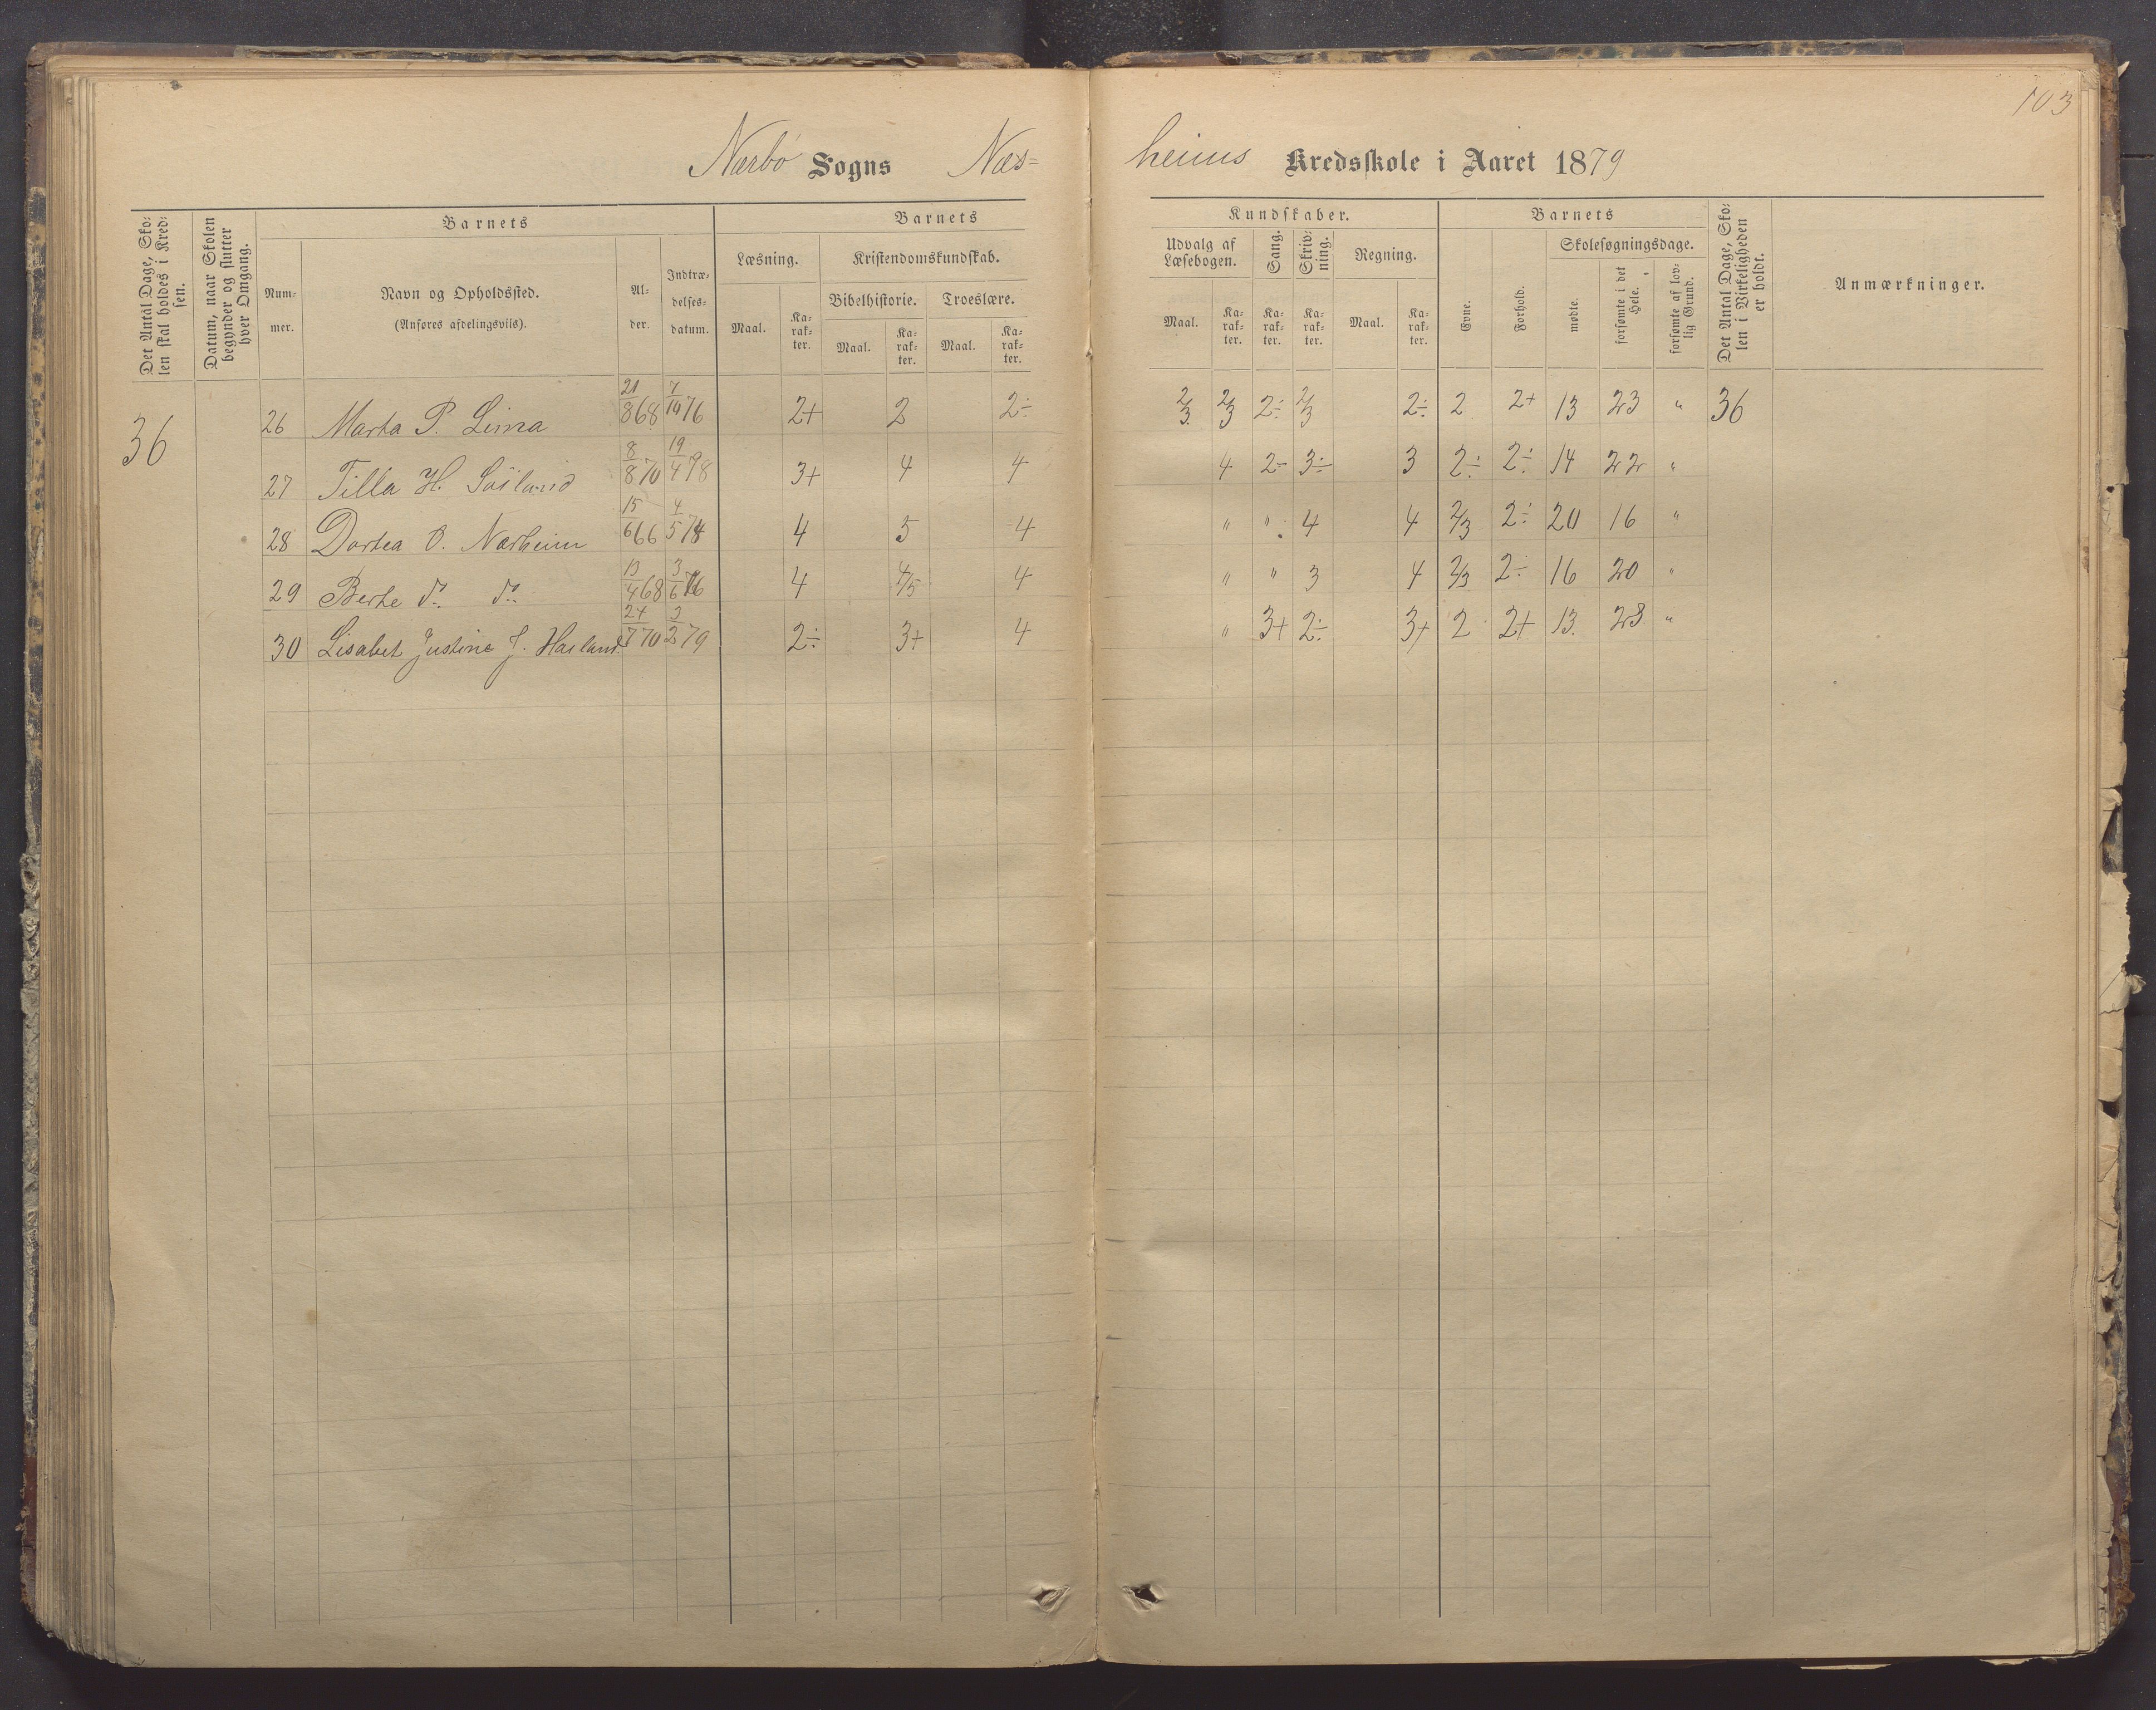 103
Nærbø Sogns Næs=
heims Kredsskole i Aaret 1879
Det Antal Dage, Sko-
len skal holdes i Kred-
sen.
Datum, naar Skolen
begynder og slutter
hver Omgang.
Barnets
Num-
mer.
Navn og Opholdssted.
(Anføres afdelingsviis).
Al-
der.
Indtræ-
delses-
datum.
Barnets
Læsning.
Maal.
Ka-
rak-
ter.
Kristendomskundskab.
Bibelhistorie.
Maal.
Ka-
rak-
ter.
Troeslære.
Maal.
Ka-
rak-
ter.
Kundskaber.
Udvalg af
Læsebogen.
Maal.
Ka-
rak-
ter.
Sang.
Ka-
rak-
ter.
Skriv-
ning.
Ka-
rak-
ter.
Regning.
Maal.
Ka-
rak-
ter.
Barnets
Evne.
Forhold.
Skolesøgningsdage.
mødte.
forsømte i det
Hele.
forsømte af lov-
lig Grund.
Det Antal Dage, Sko-
len i Virkeligheden
er holdt.
Anmærkninger.
36 26 Marta P. Lima 21/8 68 7/10 76 2+ 2 2÷ 2/3 2/3 2÷ 2/3 2÷ 2 2+ 13 23 " 36
27 Tilla H. 8/8 70 19/4 78 3+ 4 4 4 2÷ 3÷ 3 2÷ 2÷ 14 22 "
28 Dortea O. Næsheim 15/6 66 4/5 74 4 5 4 " " 4 4 2/3 2÷ 20 16 "
29 Berte do do 13/4 68 3/6 76 4 4/5 4 " " 3 4 2/3 2÷ 16 20 "
30 Lisabet Justine J. Haaland 24/7 70 3/2 79 2÷ 3+ 4 " 3+ 2÷ 3+ 2 2+ 13. 23 "